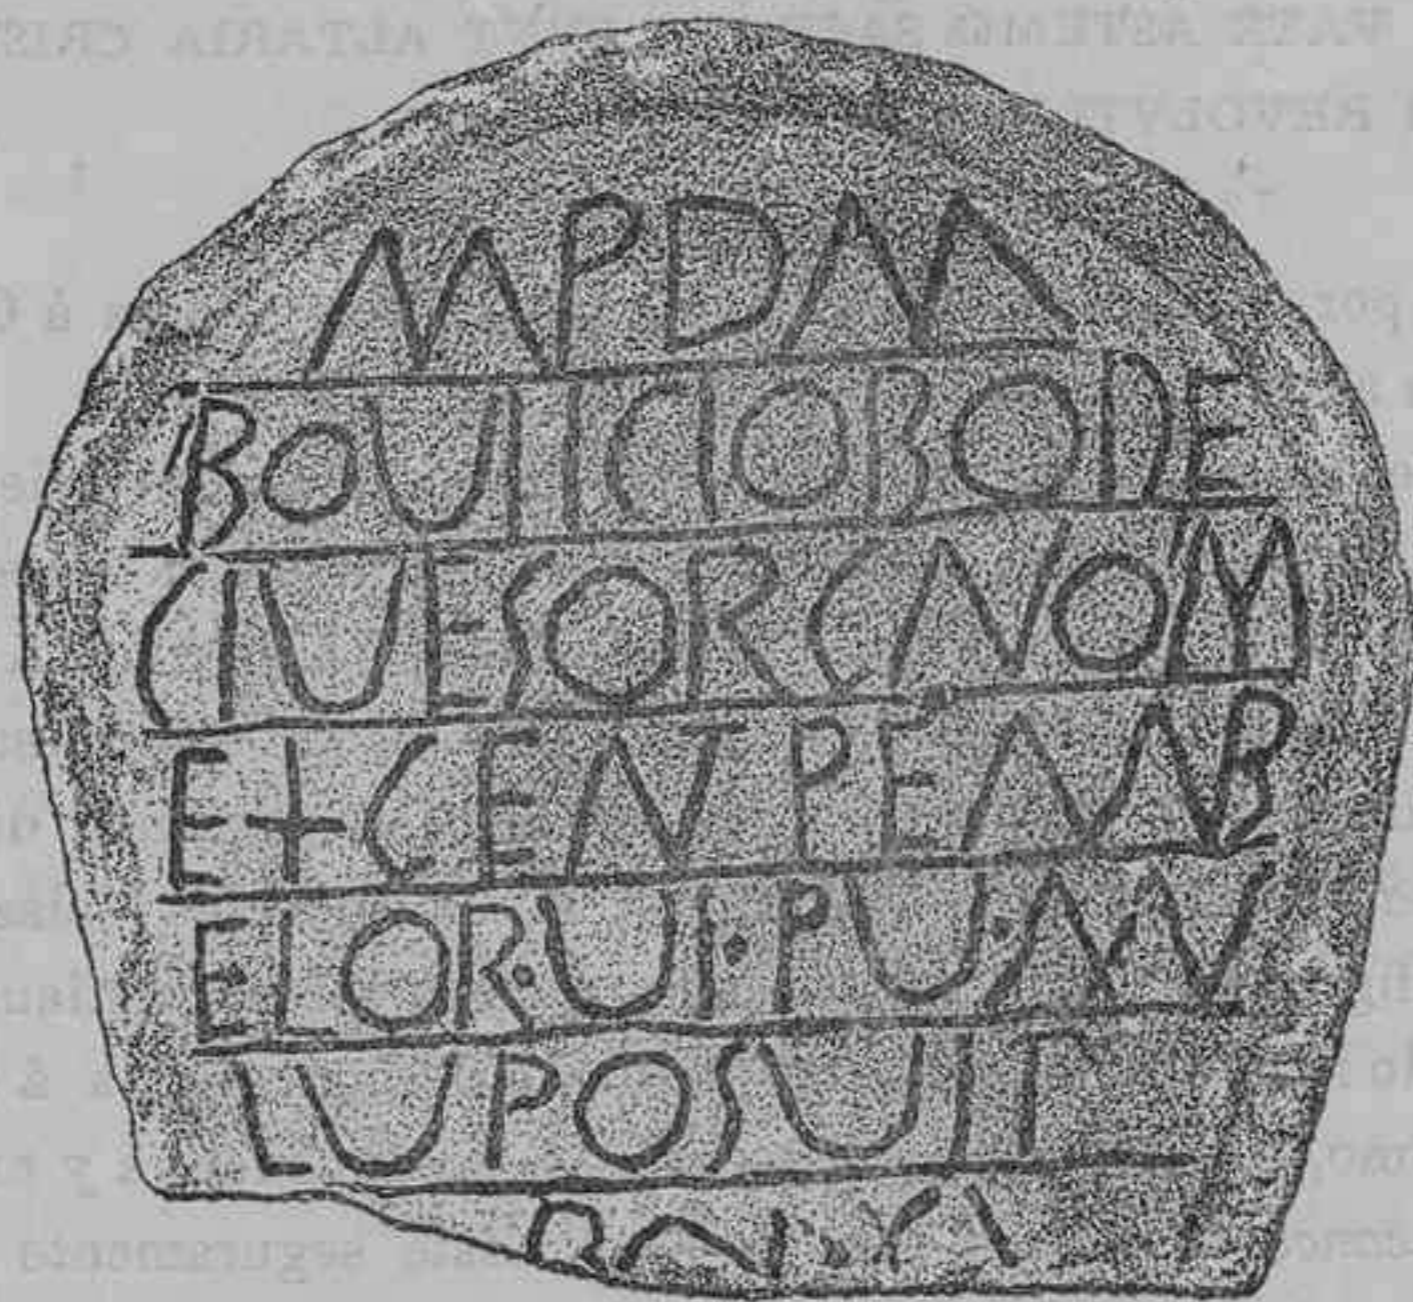 MPDM
BOUIICIOBODE
CIUESORCNOM
E+CENTPEMB
ELOR·UI·PU·AN
LUPOSUIT